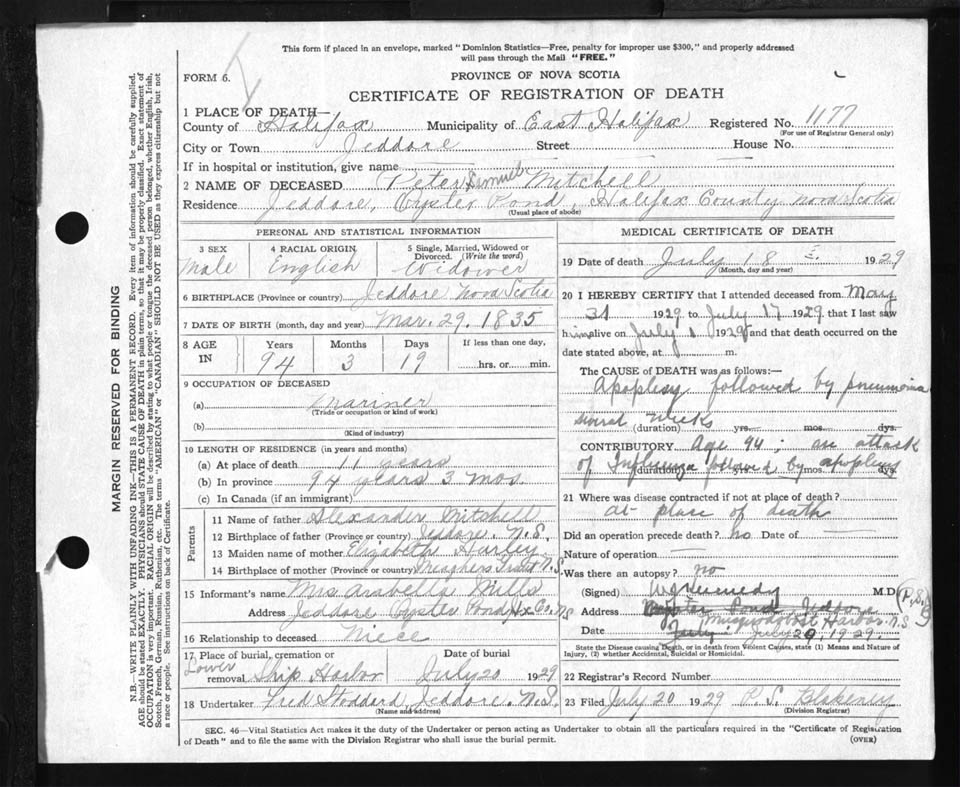 This form if placed in an envelope, marked "Dominion Statistics—Free, penalty for improper use $300," and properly addressed
will pass through the Mail "FREE."
FORM 6.
PROVINCE OF NOVA SCOTIA
CERTIFICATE OF REGISTRATION OF DEATH
1 PLACE OF DEATH—
County of Halifax Municipality of East Halifax Registered No. 1177
(For use of Registrar General only)
City or Town Jeddore Street House No.
If in hospital or institution, give name
2 NAME OF DECEASED Peter Samuel Mitchell
Residence Jeddore, Oyster Pond, Halifax County Nova Scotia
(Usual place of abode)
PERSONAL AND STATISTICAL INFORMATION
3 SEX 4 RACIAL ORIGIN 5 Single, Married, Widowed or
Divorced. (Write the word)
Male English Widower
6 BIRTHPLACE (Province or country) Jeddore Nova Scotia
7 DATE OF BIRTH (month, day and year) Mar. 29. 1835
8 AGE IN Years Months Days If less than one day,
94 3 19 hrs. or min.
9 OCCUPATION OF DECEASED
(a) Mariner
(Trade or occupation or kind of work)
(b)
(Kind of industry)
10 LENGTH OF RESIDENCE (in years and months)
(a) At place of death 11 years
(b) In province 94 years 3 mos.
(c) In Canada (if an immigrant)
Parents
11 Name of father Alexander Mitchell
12 Birthplace of father (Province or country) Jeddore. N.S.
13 Maiden name of mother Elizabeth
14 Birthplace of mother (Province or country) Meaghers Grant N.S.
15 Informant's name Mrs Arabella Mills
Address Jeddore Oyster Pond Hx Co. N.S
16 Relationship to deceased Niece
17 Place of burial, cremation or Date of burial
removal Lower Ship Harbor July 20 1929
18 Undertaker Fred Stoddard Jeddore. N.S.
(Name and address)
MEDICAL CERTIFICATE OF DEATH
19 Date of death July 18 1929
(Month, day and year)
20 I HEREBY CERTIFY that I attended deceased from May
31 1929 to July 17 1929 that I last saw
him alive on July 1 1929 and that death occurred on the
date stated above, at m.
The CAUSE OF DEATH was as follows:—
Apoplexy followed by pneumonia
several weeks
(duration) yrs. mos. dys.
CONTRIBUTORY Age 94; an attack
of Influenza followed by apoplexy
(duration) yrs. mos. dys.
21 Where was disease contracted if not at place of death?
at place of death
Did an operation precede death? no Date of
Nature of operation
Was there an autopsy? no
(Signed) Kennedy M.D
Address Oyster Pond Jeddore
Musquodoboit Harbor N.S
Date July July 20, 1929
State the Disease causing Death, or in death from Violent Causes, state (1) Means and Nature of
Injury, (2) whether Accidental, Suicidal or Homicidal.
22 Registrar's Record Number
23 Filed July 20 1929 P. S. Blakeney
(Division Registrar)
SEC. 46—Vital Statistics Act makes it the duty of the Undertaker or person acting as Undertaker to obtain all the particulars required in the "Certificate of Registration
of Death" and to file the same with the Division Registrar who shall issue the burial permit. (OVER)
MARGIN RESERVED FOR BINDING
N.B.—WRITE PLAINLY WITH UNFADING INK—THIS IS A PERMANENT RECORD. Every item of information should be carefully supplied.
AGE should be stated EXACTLY. PHYSICIANS should STATE CAUSE OF DEATH in plain terms, so that it may be properly classified. Exact statement of
OCCUPATION is very important. RACIAL ORIGIN will be described by stating to what people or tongue the deceased person belonged, whether English, Irish,
Scotch, French, German, Russian, Ruthenian, etc. The terms "AMERICAN" or "CANADIAN" SHOULD NOT BE USED as they express citizenship but not
a race or people. See instructions on back of Certificate.